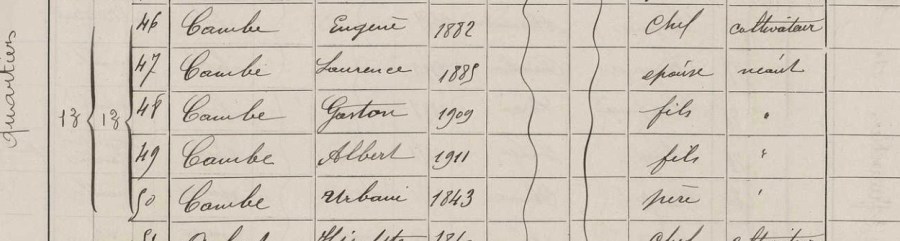 quartiers
13 13
46 Cambe Eugène 1882 Chef cultivateur
47 Cambe Laurence 1885 épouse néant
48 Cambe Gaston 1909 fils "
49 Cambe Albert 1911 fils "
50 Cambe Urbain 1843 père "
51